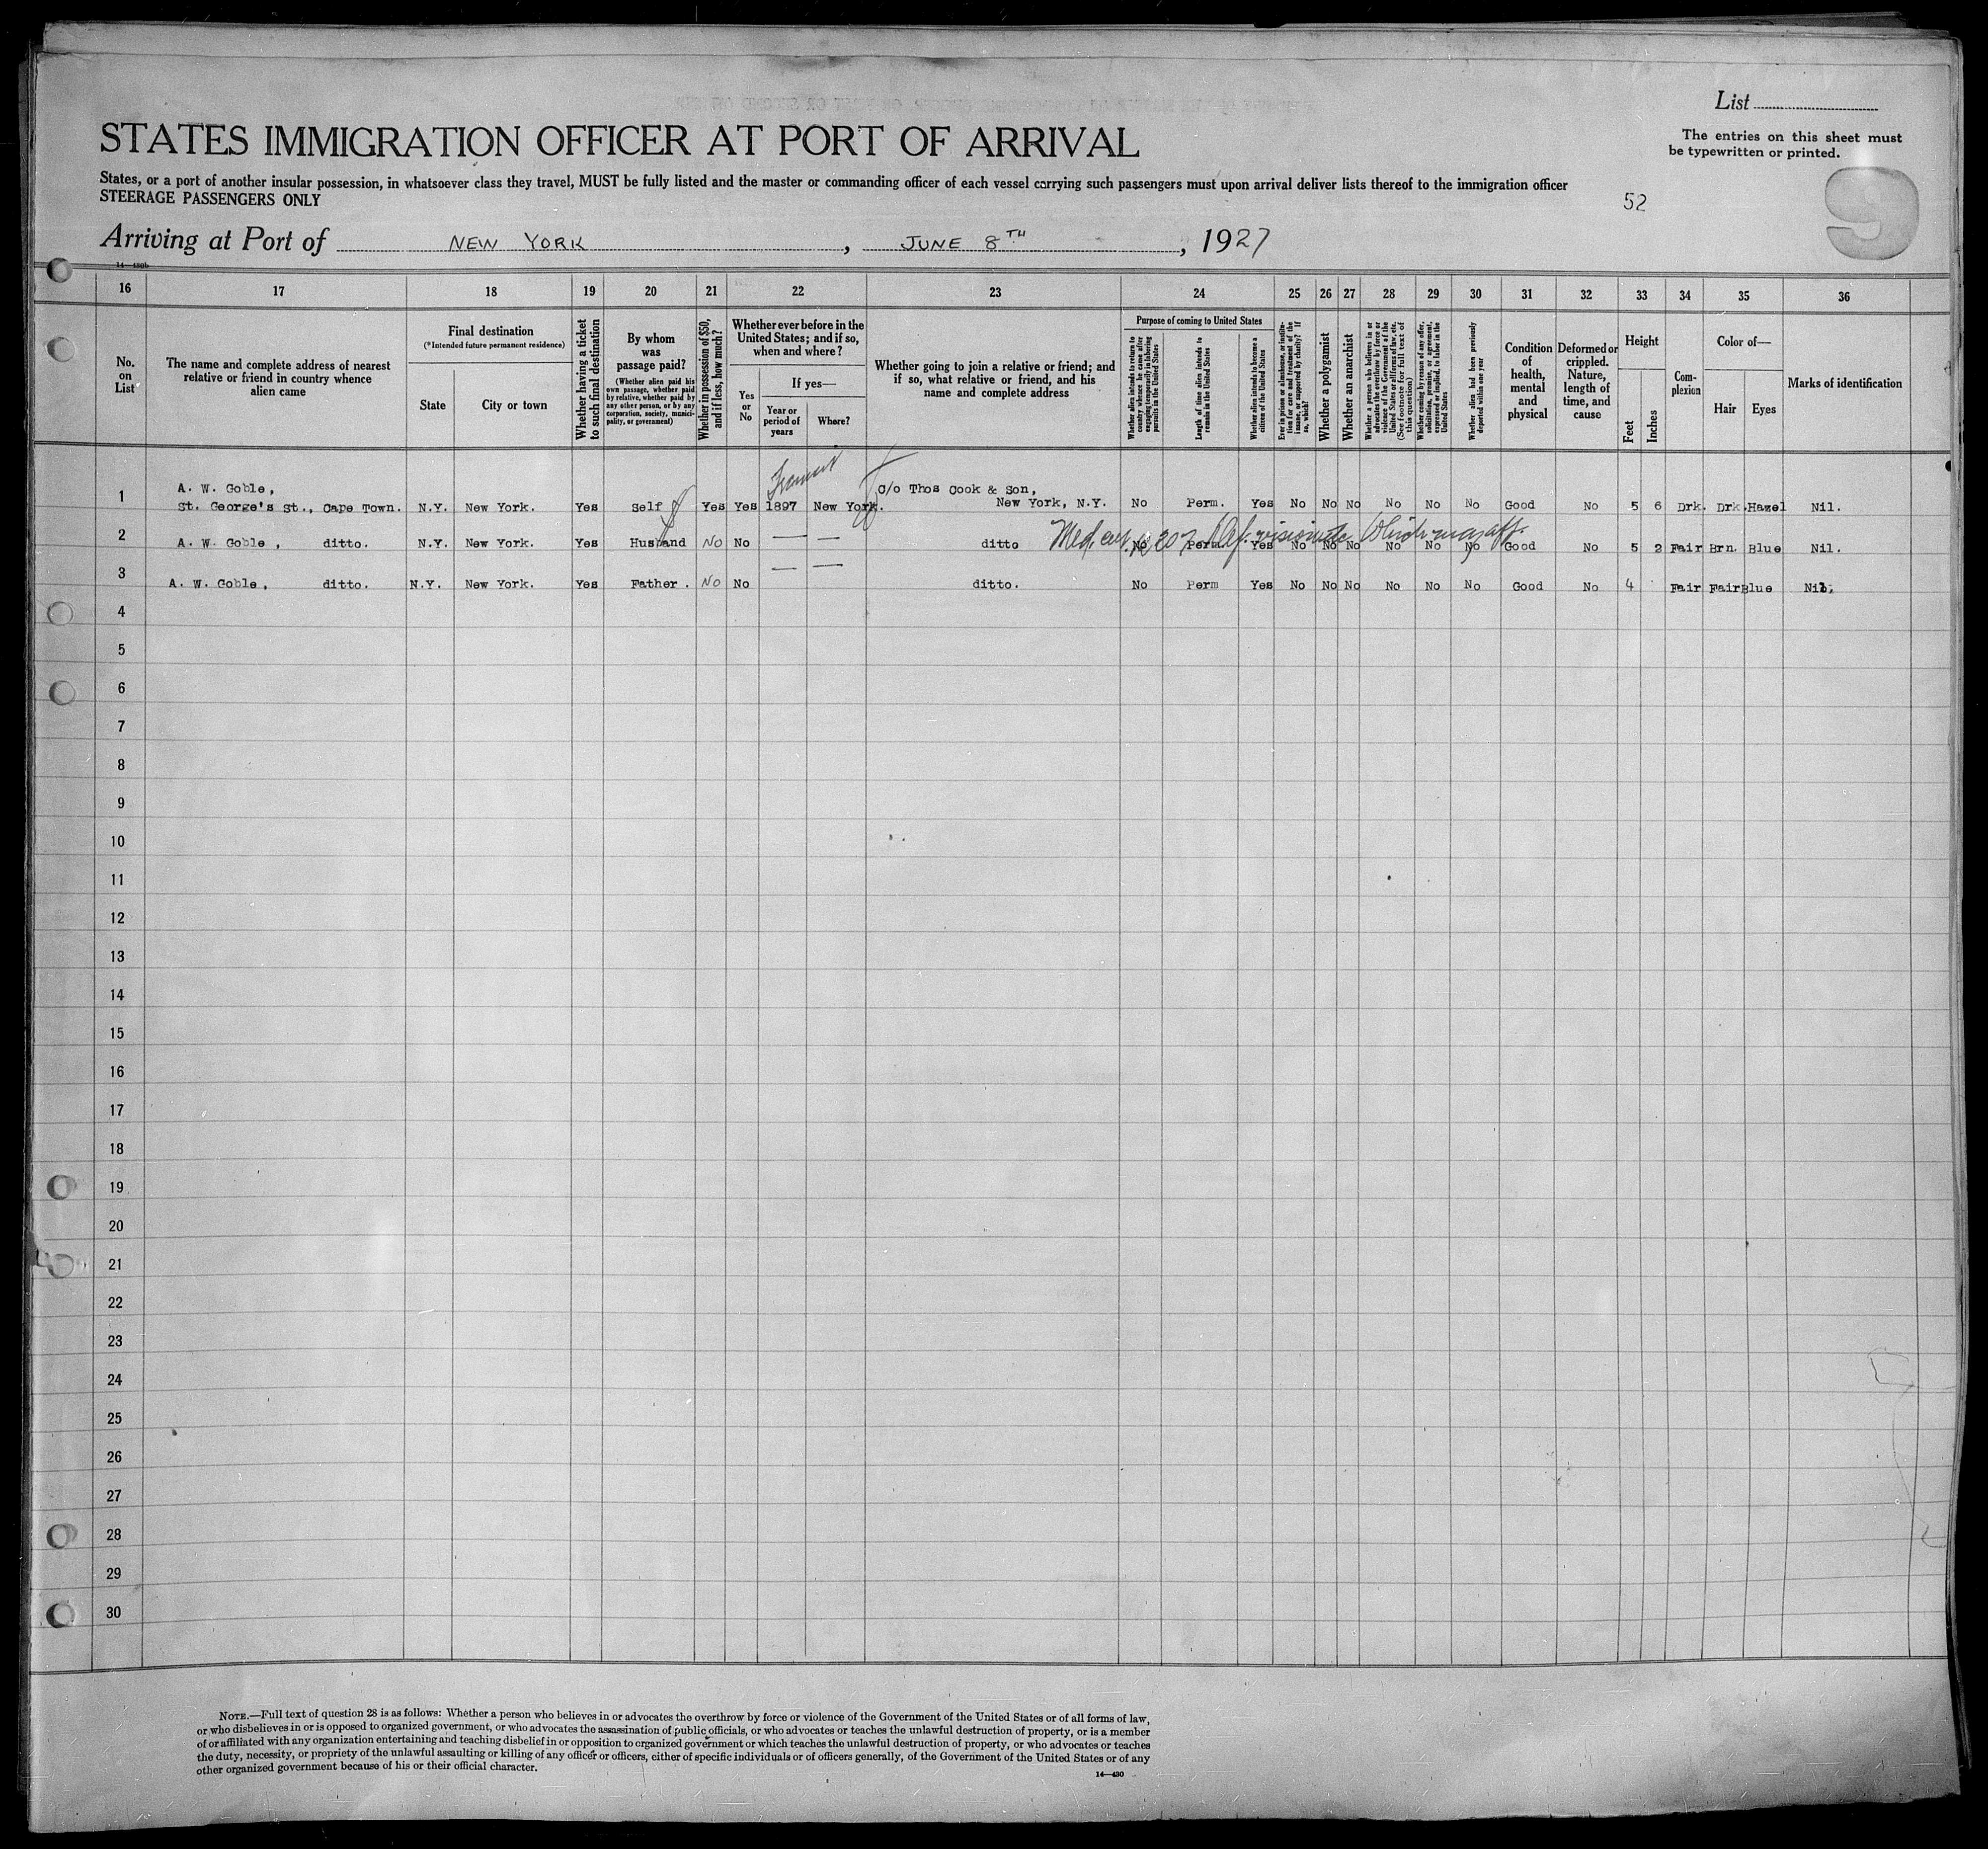 List
The entries on this sheet must
be typewritten or printed.
STATES IMMIGRATION OFFICER AT PORT OF ARRIVAL
States, or a port of another insular possession, in whatsoever class they travel, MUST be fully listed and the master or commanding officer of each vessel carrying such passengers must upon arrival deliver lists thereof to the immigration officer
STEERAGE PASSENGERS ONLY
52
9
Arriving at Port of NEW YORK, JUNE 8TH, 1927
14—430b
16 17 18 19 20 21 22 23 24 25 26 27 28 29 30 31 32 33 34 35 36
No. on List
The name and complete address of nearest relative or friend in country whence alien came
Final destination
(*Intended future permanent residence)
State
City or town
Whether having a ticket to such final destination
By whom was passage paid?
(Whether alien paid his own passage, whether paid by relative, whether paid by any other person, or by any corporation, society, municipality, or government)
Whether in possession of $50, and if less, how much?
Whether ever before in the United States; and if so, when and where?
Yes or No
If yes—
Year or period of years
Where?
Whether going to join a relative or friend; and if so, what relative or friend, and his name and complete address
Purpose of coming to United States
Whether alien intends to return to country whence he came after engaging temporarily in laboring pursuits in the United States
Length of time alien intends to remain in the United States
Whether alien intends to become a citizen of the United States
Ever in prison or almshouse, or institution for care and treatment of the insane, or supported by charity? If so, which?
Whether a polygamist
Whether an anarchist
Whether a person who believes in or advocates the overthrow by force or violence of the Government of the United States or all forms of law, etc. (See footnote for full text of this question)
Whether coming by reason of any offer, solicitation, promise, or agreement, expressed or implied, to labor in the United States
Whether alien had been previously deported within one year
Condition of health, mental and physical
Deformed or crippled. Nature, length of time, and cause
Height
Feet
Inches
Complexion
Color of—
Hair
Eyes
Marks of identification
1 A. W. Goble,
St. George's St., Cape Town. N.Y. New York. Yes Self Yes Yes 1897 New York. C/o Thos Cook & Son,
New York, N.Y. No Perm. Yes No No No No No No Good No 5 6 Drk. Drk. Hazel Nil.
2 A. W. Goble, ditto. N.Y. New York. Yes Husband No No — — ditto No Perm Yes No No No No No No Good No 5 2 Fair Brn. Blue Nil.
Med. cert.
3 A. W. Goble, ditto. N.Y. New York. Yes Father. No No — — ditto. No Perm Yes No No No No No No Good No 4 Fair Fair Blue Nil.
4
5
6
7
8
9
10
11
12
13
14
15
16
17
18
19
20
21
22
23
24
25
26
27
28
29
30
NOTE.—Full text of question 28 is as follows: Whether a person who believes in or advocates the overthrow by force or violence of the Government of the United States or of all forms of law,
or who disbelieves in or is opposed to organized government, or who advocates the assassination of public officials, or who advocates or teaches the unlawful destruction of property, or is a member
of or affiliated with any organization entertaining and teaching disbelief in or opposition to organized government or which teaches the unlawful destruction of property, or who advocates or teaches
the duty, necessity, or propriety of the unlawful assaulting or killing of any officer or officers, either of specific individuals or of officers generally, of the Government of the United States or of any
other organized government because of his or their official character.
14—430